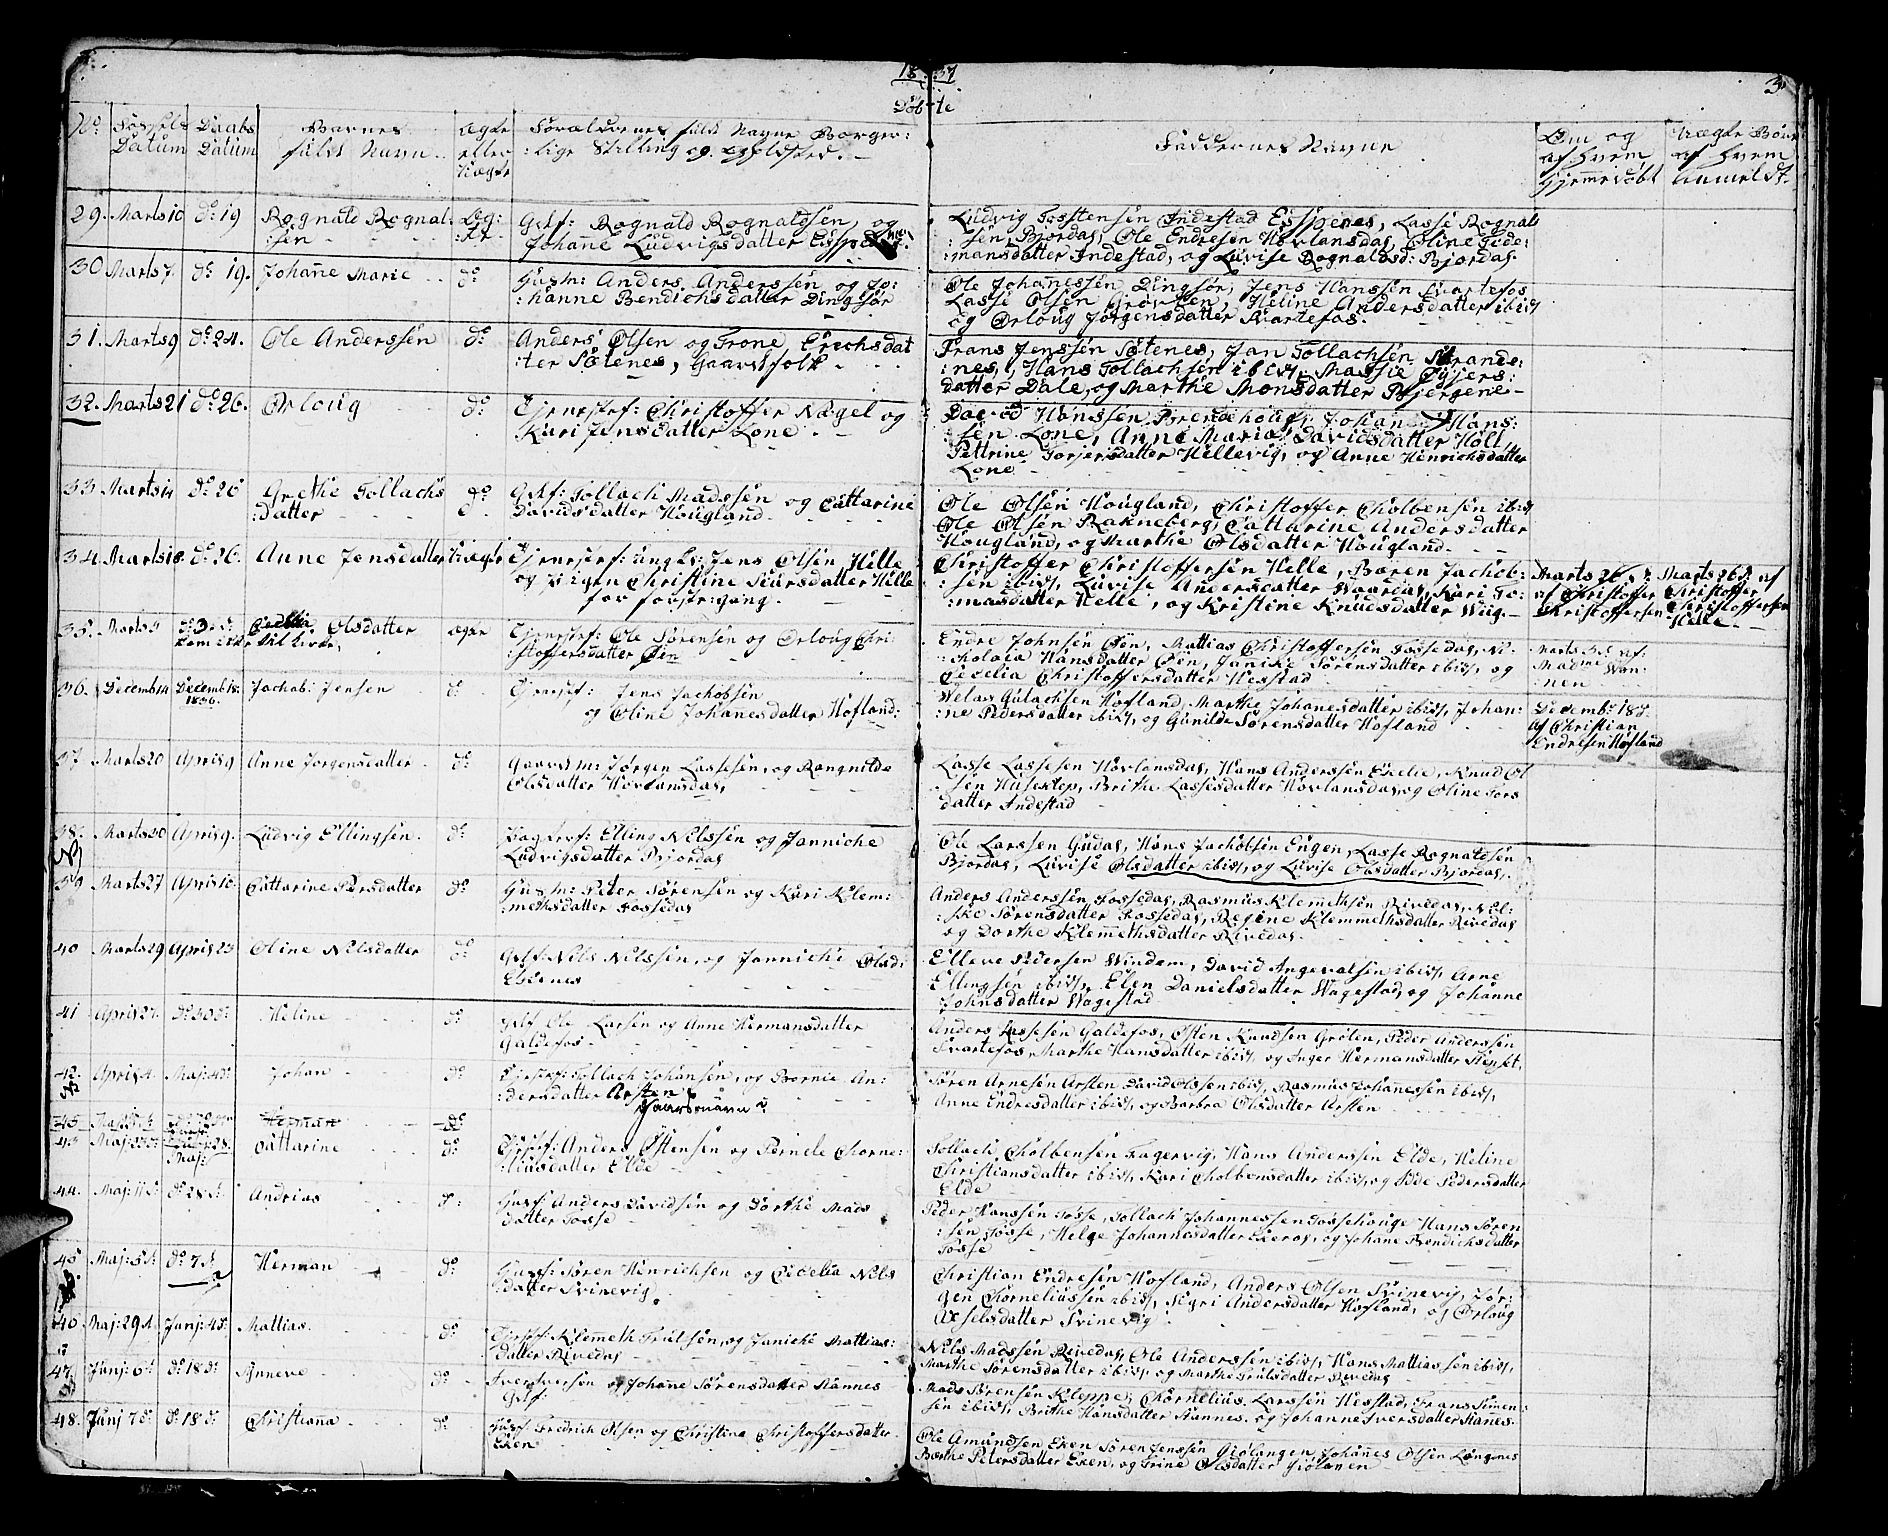 1837
3
Døbte
No. Fødsels Datum Daabs Datum Barnets fulde Navn Ægte eller Uægte Forældrenes fulde Navne Borger:
:lige Stilling og opholdsted.
Faddernes Navne
Om og af hvem hjemmedøbt
Uægte Børn af hvem anmeldt.
29. Marts 10 do 19 Rognald Rognal: Æg: Grf: Rognald Rognaldsen, og
:sen :te Johanne Ludvigsdatter Espenes
Ludvig Torstensen Indestad Espenes, Lasse Rognald
:sen, Bjordas, Ole Endresen Hovlansdas, Oline Gude:
:mansdatter Indestad, og Luvise Rognaldsd: Bjordas.
30 Marts 7 do 19. Johanne Marie do Husm: Anders Anderssen og Jo:
:hanne Bendichsdatter Dingsør
Ole Johannessen Dingsør, Jens Hanssen Svartefos
Lasse Olsen Grøvlen, Heline Andersdatter ibid,
og Orloug Jørgensdatter Svartefos.
31. Marts 9 do 24. Ole Anderssen do Anders Olsen og Trone Erichsdat
:ter Søtenes, Gaardfolk
Frans Jenssen Søtenes, Jan Tollachsen Strande:
:nes, Hans Tollachsen ibid,
datter Dale, og Marthe Monsdatter Bjergene
32. Marts 21 do 26. Orloug do Tjenestf: Christoffer Nægel og
Kari Jensdatter Lone.
David Hanssen Brendehoug, Johan Hans:
:sen Lone, Anne Maria Davidsdatter Holt,
Pettrine Torjersdatter Hellevig, og Anne Henrichsdatter
Lone
33 Marts 14 do 26 Grethe Tollachs do Grf: Tollach Madssen og Cattarine
:datter Davidsdatter Hougland
Ole Olsen Hougland, Christoffer Cholbensen ibid,
Ole Olsen Bakneberg, Cattarine Andersdatter
Hougland, og Marthe Olsdatter Hougland.
34. Marts 18 do 26. Anne Jensdatter Uægte Tjenestf: ungk: Jens Olsen Helle
og pigen Christine Siursdatter Helle
for første gang.
Christoffer Christoffersen Helle, Bæren Jachob:
:sen ibid, Luvise Andersdatter Waardas, Kari To:
:masdatter Helle, og Kristine Knudsdatter Wug.
Marts 26 af Christoffer Christoffersen
Marts 26 af Christoffer Christoffersen Helle
35. Marts 3 Olsdatter ægte Tjenestf: Ole Sørensen og Orloug Chri:
:stoffersdatter Øen
Endre Johnsen Øen, Mattias Christoffersen Fossedas, Ni:
:kolaia Hansdatter Øen, Janike Sørensdatter ibid, og
Cecelia Christoffersdatter Hesstad
36. Decemb 14 Decemb 18: 1836. Jachob: Jensen do Tjenestf: Jens Jachobsen
og Oline Johannesdatter Hofland:
Gulachsen Hofland, Marthe Johannesdatter ibid, Johan:
:ne Pedersdatter ibid, og Gunilde Sørensdatter Hofland
Decemb: 18
af Christian
Endresen Hofland
37. Marts 20 April 9 Anne Jørgensdatter do Gaardm: Jørgen Lassesen, og Rangnilde
Olsdatter Hovlansdas,
Lasse Lassesen Hovlansdas, Hans Anderssen Ekelie, Knud Ol
:sen Huseklep, Brithe Lassesdatter Hovlansdas, og Oline Tors
datter Indestad
38. Marts 30 April 9. Ludvig Ellingsen. do Elling Nilssen og Janniche
Ludvigsdatter Bjordas
Ole Larssen Gudas, Hans Jachobsen Engen, Lasse Rognaldsen
Bjordas, Luvise Olsdatter ibid, og Luvise Olsdatter Bjordas.
39 Marts 27 April 16. Cattarine Pedersdatter do Husm: Peter Sørensen og Kari Klem:
:methsdatter Fossedas
Anders Anderssen Fossedas, Rasmus Klemethsen Rivedas, Nil:
:ske Sørensdatter Fossedas, Regine Klemmethsdatter Rivedas
og Dorthe Klemmethsdatter Rivedas.
40 Marts 29 April 23 Oline Nilsdatter do Grf: Nils Nilssen, og Janniche Olsd:
Espenes
Elleve Pedersen Windem, David Ingevalsen ibid, Arne
Ellingsen ibid, Elen Danielsdatter Wagestad, og Johanne
Johnsdatter Wagestad
41 April 27. do 30 Heline do Grf Ole Larsen og Anne Hermansdatter
Galdefos.
Anders Lassesen Galdefos, Osten Knudsen Grøten, Peder Anderssen
Svartefos, Marthe Hansdatter ibid, og Inger Hermansdatter Stenset.
42. April 4. Maj: 4 Johan do Tollach Johansen, og Bornie An:
:dersdatter Arsten
Gaardsnavn?
Søren Arnesen Arsten David Olssen ibid, Rasmus Johannessen ibid,
Anne Endresdatter ibid, og Barbra Olsdatter Arsten
45 Herman do
43 Maj: Cattarine do Anders Østensen og Pernele Corne:
:liusdatter Elde
Tollach Cholbensen Fagervig, Hans Anderssen Elde, Heline
Christiansdatter ibid, Kari Cholbensdatter ibid, og Pedersdatter
Elde
44. Maj: 11 do 28 Andrias do Husf: Anders Davidsen og Dorthe Mads
datter Fosse
Peder Hanssen Fosse, Tollach Johannessen Fossehouge Hans Søren
:sen Fosse, Helge Johannesdatter og Johane Bendichsdatter
Fosse
45 Maj: 5 do 7 Herman do Husf: Søren Henrichsen og Cecelia Nils
datter Svinevig.
Christian Endresen Hofland, Anders Olsen Svinevig, Jør:
gen Corneliussen ibid, Sigri Andersdatter Hofland, og Orloug
Axelsdatter Svinevig
46 Maj: 29 Junj: 4 Mattias. do Klemeth Trulsen, og Janiche Mattias:
datter Rivedas
Nils Madssen Rivedas, Ole Anderssen ibid, Hans Mattiassen ibid,
Marthe Sørensdatter ibid, og Marthe Trulsdatter Rivedas
47. Junj: 6 do 18 Anneve do Iver Iversen og Johane Sørensdatter Stannes
Grf
Mads Sørensen Kleppe, Cornelius Larssen Hesstad, Frans Simen:
sen ibid, Brithe Hansdatter Stannes, og Johanne Iversdatter Stannes.
48. Junj 7 do 18 Christiana do Husf Fredrich Olsen og Christina Christoffersdatter
Eken
Ole Amundsen Eken Søren Jenssen Giølangen Johannes Olsen Langenes
Berthe Petersdatter Eken, og Trine Olsdatter Giølanen